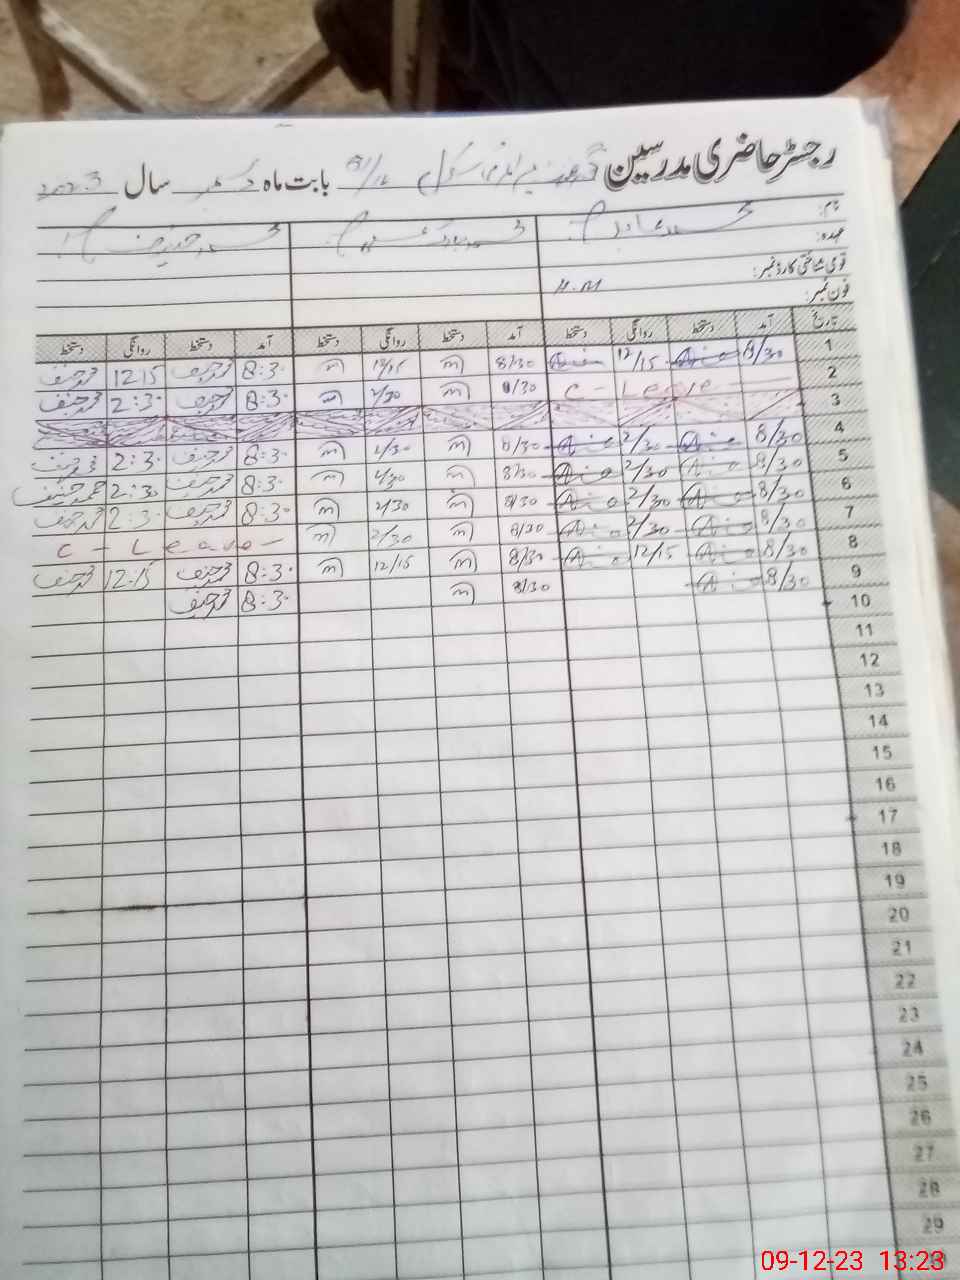 رجسٹر حاضری مدرسین گورنمنٹ پرائمری سکول بابت ماہ دسمبر سال 2023
نام:
محمد حنیف
عہدہ:
قومی شناختی کارڈ نمبر:
H.M
فون نمبر:
تاریخ آمد دستخط روانگی دستخط آمد دستخط روانگی دستخط آمد دستخط روانگی دستخط
1 8/30 12/15 8/30 m 12/15 m 8:30 محمد حنیف 12 15 محمد حنیف
2 C - Leave 8/30 m 2/30 m 8:30 محمد حنیف 2:30 محمد حنیف
3
4 8/30 2/30 8/30 m 2/30 m 8:30 محمد حنیف 2:30 محمد حنیف
5 8/30 2/30 8/30 m 2/30 m 8:30 محمد حنیف 2:30 محمد حنیف
6 8/30 2/30 8/30 m 2/30 m 8:30 محمد حنیف 2:30 محمد حنیف
7 8/30 2/30 8/30 m 2/30 m C - Leave -
8 8/30 12/15 8/30 m 12/15 m 8:30 محمد حنیف 12:15 محمد حنیف
9 8/30 8/30 m 8:30 محمد حنیف
10
11
12
13
14
15
16
17
18
19
20
21
22
23
24
25
26
27
28
29
09-12-23 13:23